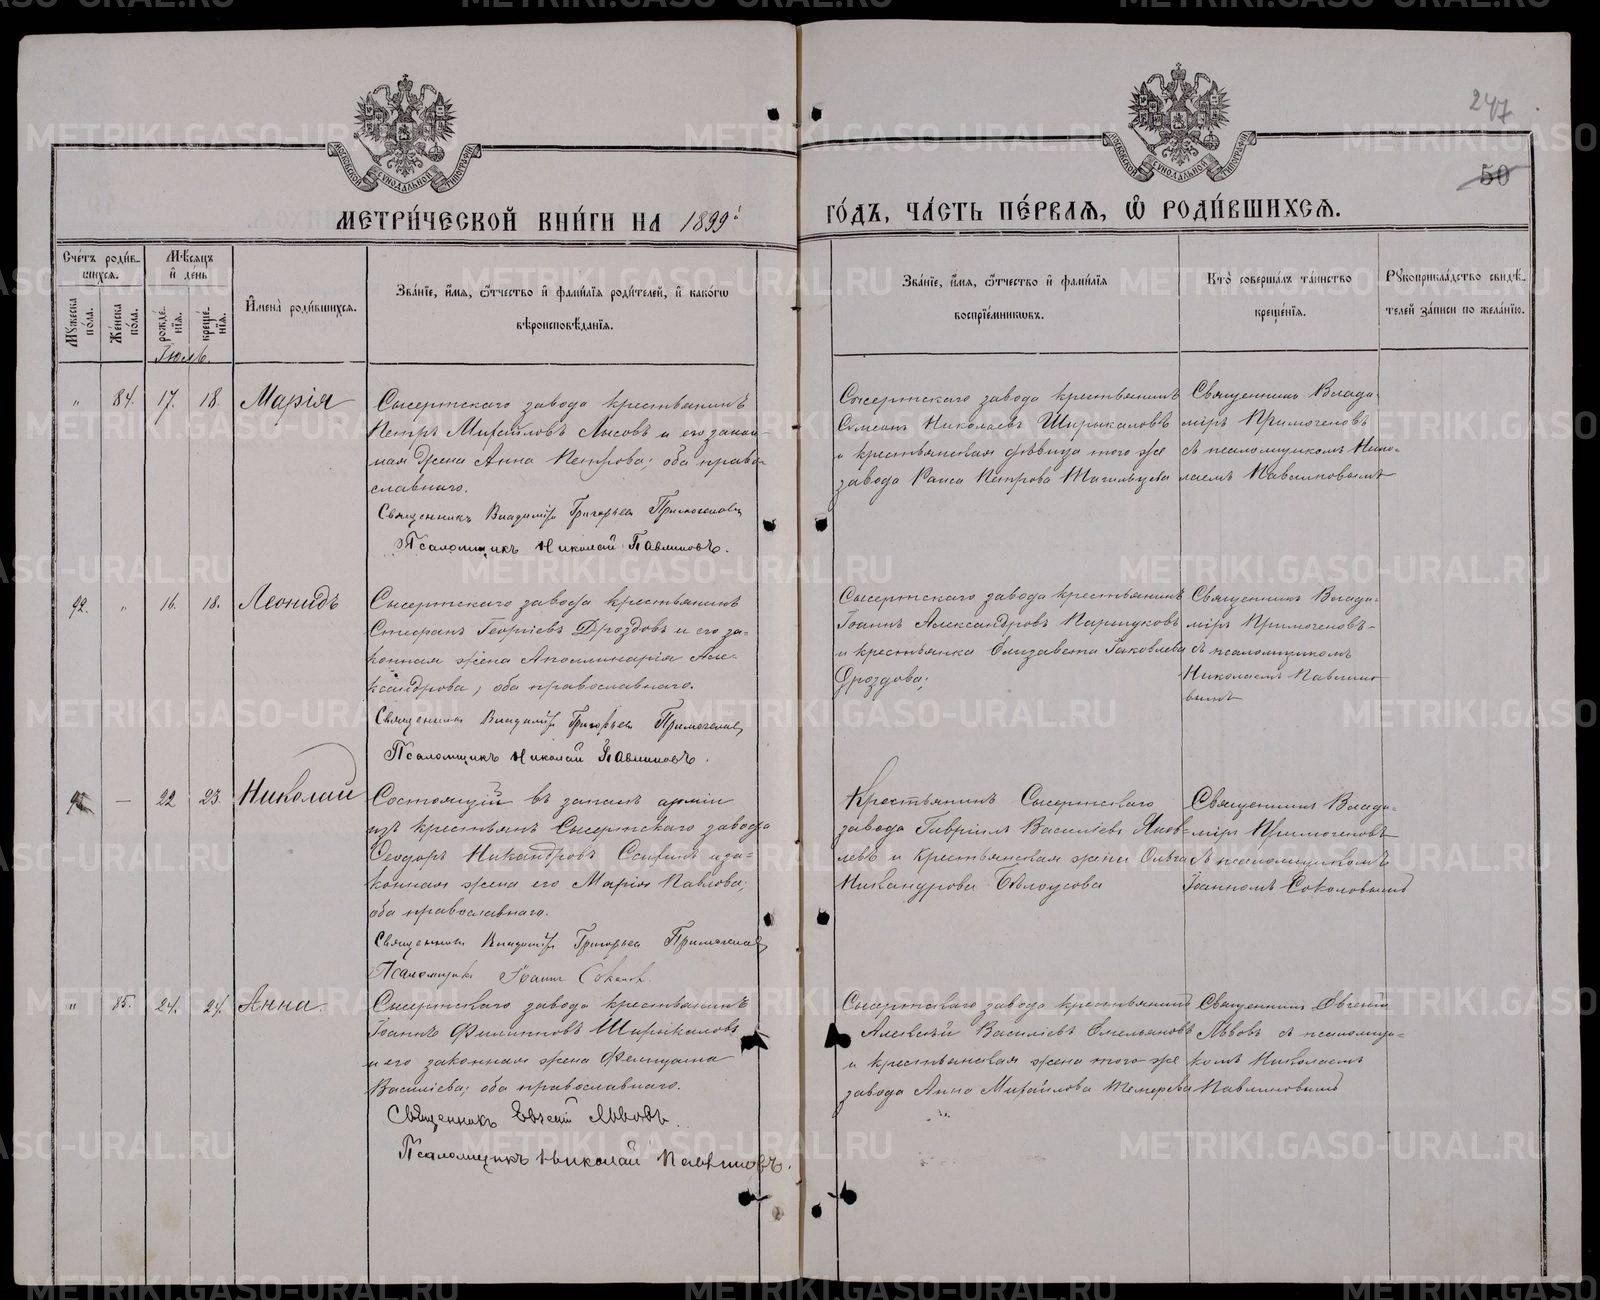 247
50
МОСКОВСКОЙ СѴНОДАЛЬНОЙ ТИПОГРАФІИ
МОСКОВСКОЙ СѴНОДАЛЬНОЙ ТИПОГРАФІИ
МЕТРИ́ЧЕСКОЙ КНИ́ГИ НА 1899й
ГО́ДЪ, ЧА́СТЬ ПЕ́РВАѦ, Ѡ҆ РОДИ́ВШИХСѦ.
Сче́тъ роди́в-
шихсѧ.
Мꙋ́жеска по́ла.
Же́нска по́ла.
Мѣ́сѧцъ
и҆ де́нь
рожде́нїѧ.
креще́нїѧ.
И҆мена̀ роди́вшихсѧ.
Зва́нїе, и҆́мѧ, ѻ҆́тчество и҆ фами́лїѧ роди́телей, и҆ како́гѡ
вѣроисповѣ́данїѧ.
Зва́нїе, и҆́мѧ, ѻ҆́тчество и҆ фами́лїѧ
воспрїе́мникѡвъ.
Кто̀ соверша́лъ та́инство
креще́нїѧ.
Рꙋкоприкла́дство свидѣ́-
телей за́писи по жела́нїю.
Іюль.
" 84. 17. 18. Марія
Сысертскаго завода крестьянинъ
Петръ Михайловъ Лысовъ и его закон-
ная жена Анна Петрова; оба право-
славнаго.
Священникъ Владиміръ Григорьев Примогеновъ
Псаломщикъ Николай Павлиновъ.
Сысертскаго завода крестьянинъ
Симеонъ Николаевъ Ширыкаловъ
и крестьянская дѣвица того же
завода Раиса Петрова Шагильцева
Священникъ Влади-
міръ Примогеновъ
съ псаломщикомъ Нико-
лаемъ Павлиновымъ
92. " 16. 18. Леонидъ
Сысертскаго завода крестьянинъ
Стефанъ Георгіевъ Дроздовъ и его за-
конная жена Аполлинарія Але-
ксандрова; оба православнаго.
Священникъ Владиміръ Григорьев Примогенов
Псаломщикъ Николай Павлиновъ.
Сысертскаго завода крестьянинъ
Іоаннъ Александровъ Паршуковъ
и крестьянка Елизавета Іаковлева
Дроздова;
Священникъ Влади-
міръ Примогеновъ
съ псаломщикомъ
Николаемъ Павлино-
вымъ
— 22 23. Николай
Состоящій въ запасѣ арміи
изъ крестьянъ Сысертскаго завода
Ѳеодоръ Никандровъ и за-
конная жена его Марія Павлова;
оба православнаго.
Священникъ Владиміръ Григорьев Примогенов
Псаломщикъ Іоаннъ Соколов.
Крестьянинъ Сысертскаго
завода Гавріилъ Василіевъ Яков-
левъ и крестьянская жена Ольга
Никандрова Бѣлоусова
Священникъ Влади-
міръ Примогеновъ
съ псаломщикомъ
Іоанномъ Соколовымъ
" 85. 24. 24. Анна.
Сысертскаго завода крестьянинъ
Іоаннъ Филипповъ Ширыкаловъ
и его законная жена Фелицата
Василіева; оба православнаго.
Священникъ Евгеній Львовъ.
Псаломщикъ Николай Павлиновъ.
Сысертскаго завода крестьянинъ
Алексѣй Василіевъ Емельяновъ
и крестьянская жена того же
завода Анна Михайлова
Священникъ Евгеній
Львовъ съ псаломщи-
комъ Николаемъ
Павлиновымъ
METRIKI.GASO-URAL.RU